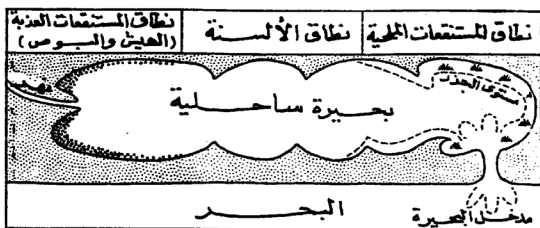 نطاق المستنقعات الملحية
نطاق الألسنة
نطاق المستنقعات العذبة
(الهيش والبوص)
نهر
مستوى الجزر
بحيرة ساحلية
البحر
مدخل البحيرة